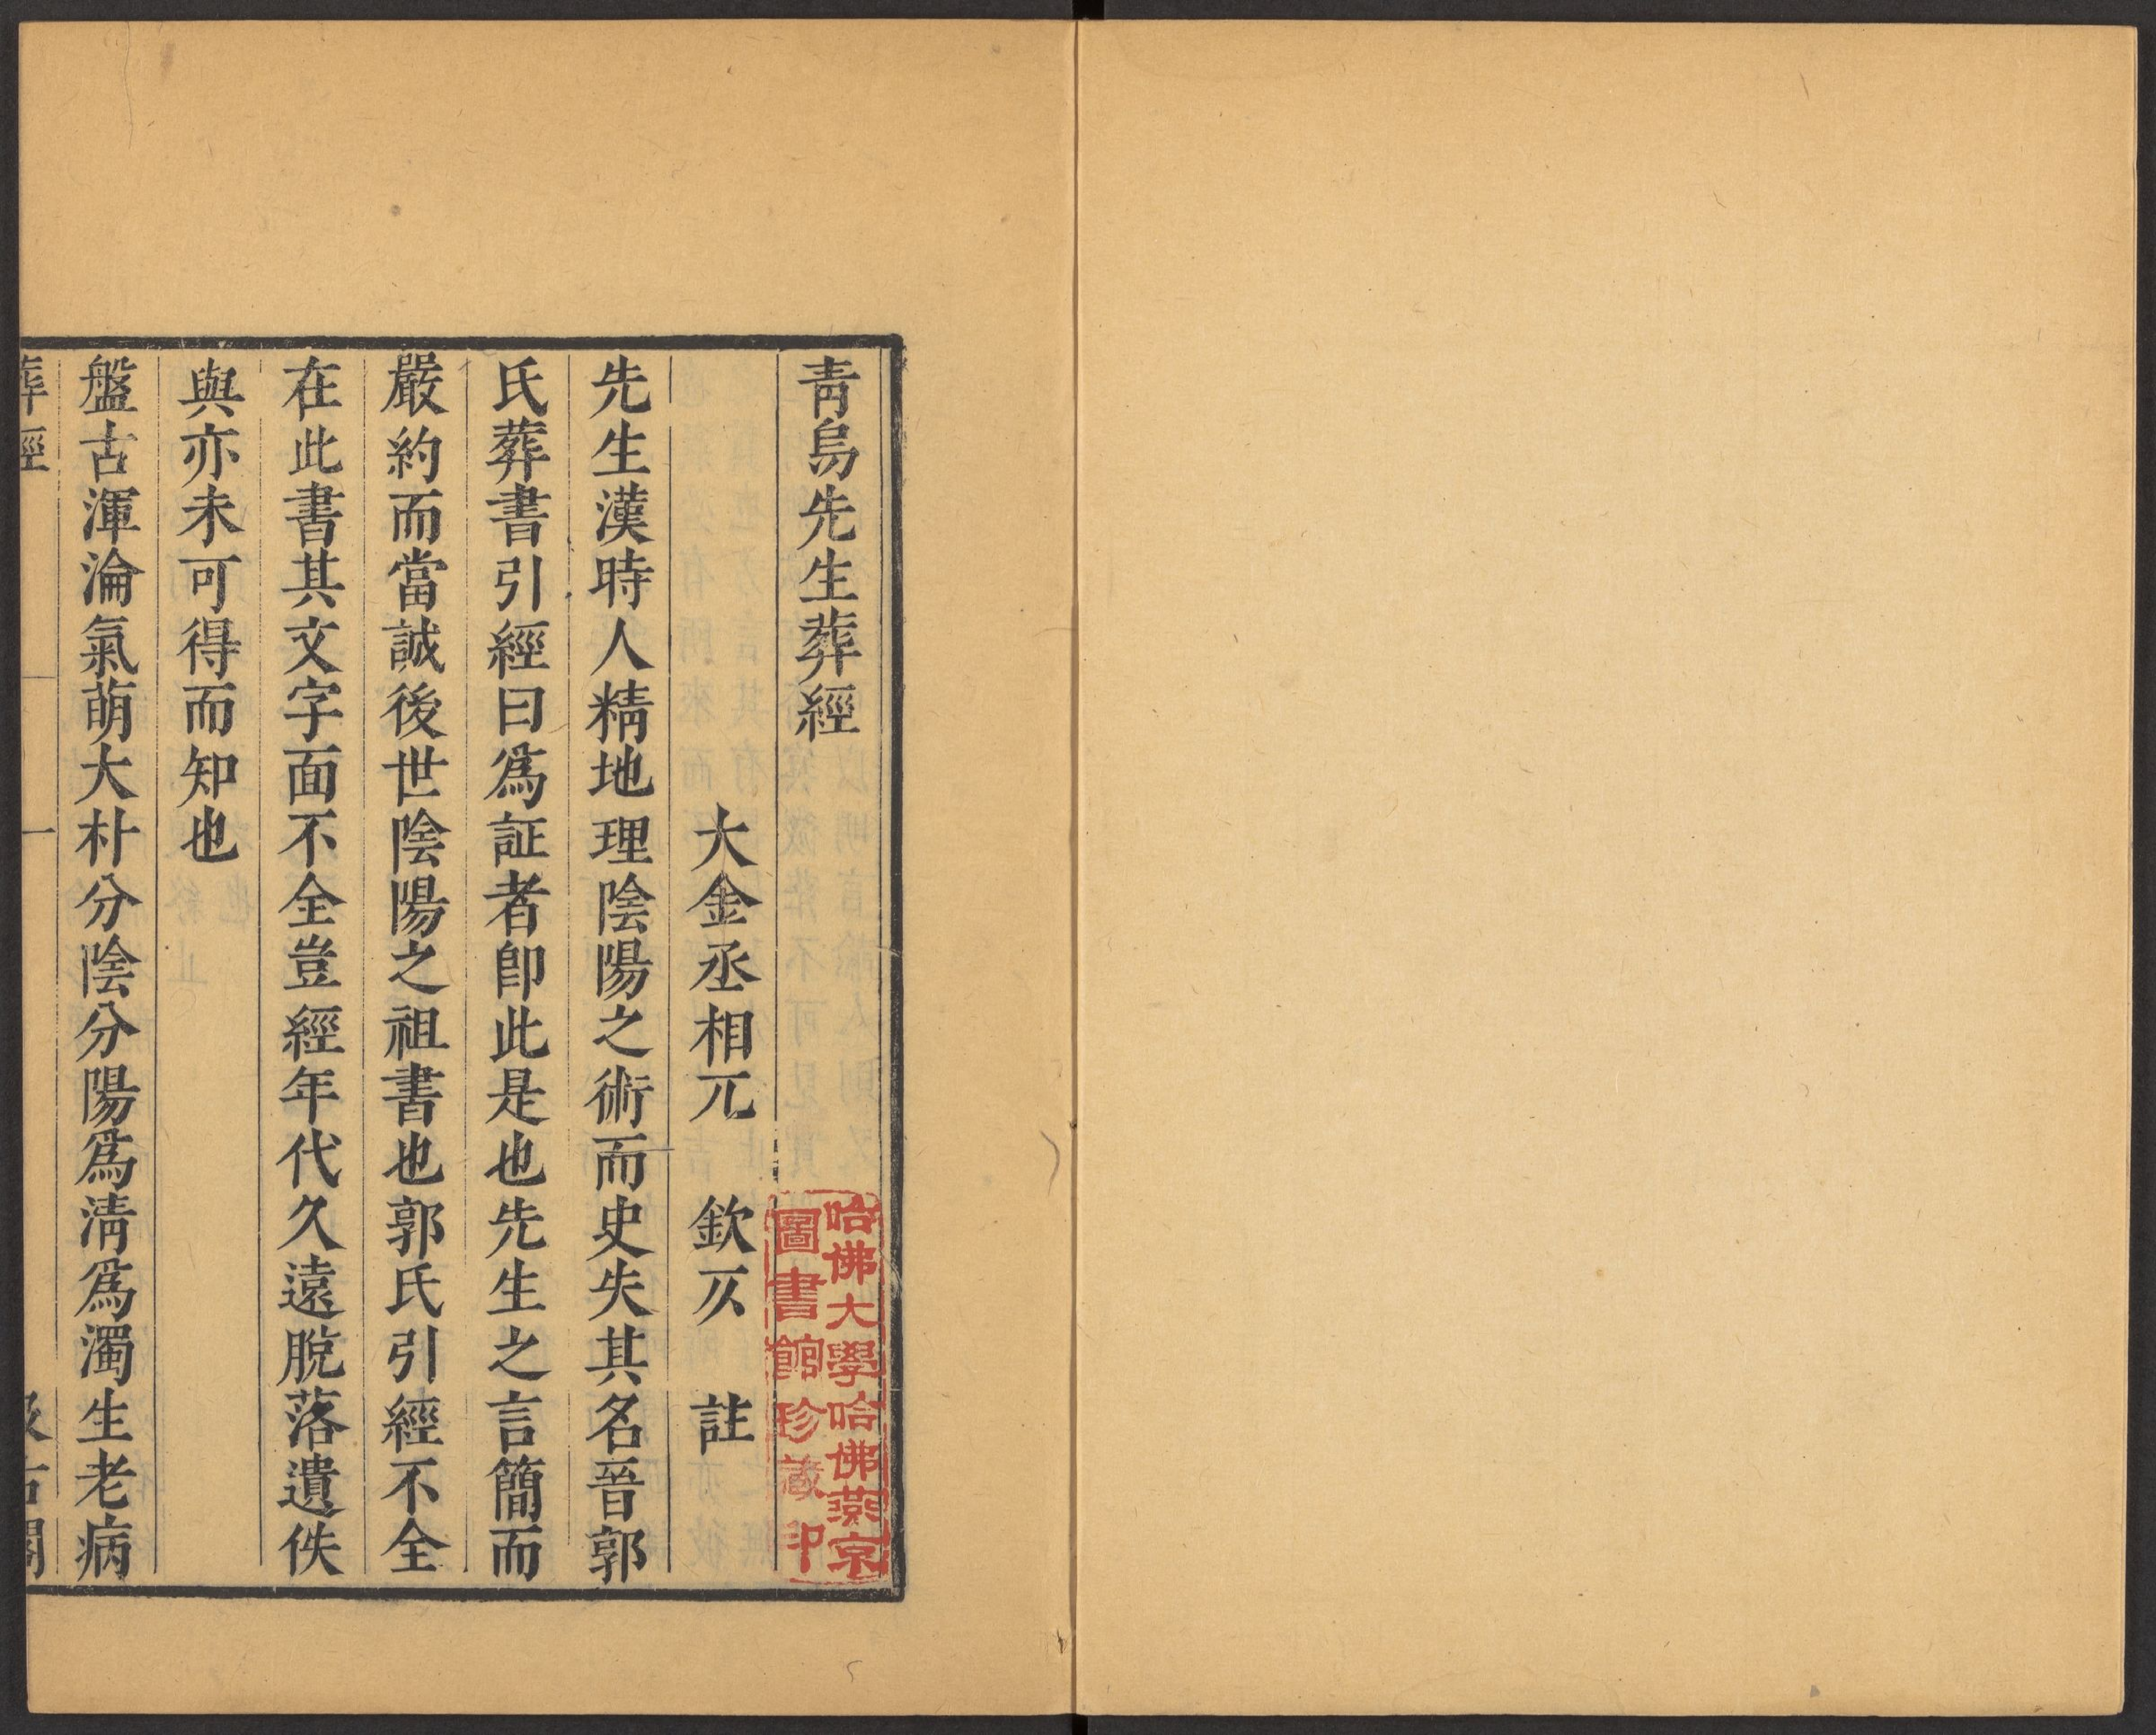 青烏先生葬經
大金丞相兀 欽仄 註
先生漢時人精地理陰陽之術而史失其名晉郭
氏葬書引經曰爲証者卽此是也先生之言簡而
嚴約而當誠後世陰陽之祖書也郭氏引經不全
在此書其文字面不全豈經年代久遠脫落遺佚
與亦未可得而知也
盤古渾淪氣萌大朴分陰分陽爲淸爲濁生老病
葬經 一 汲古閣
哈佛大學哈佛燕京
圖書館珍藏印